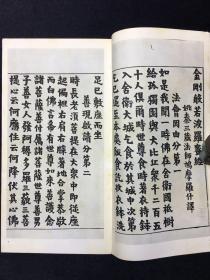 金剛般若波羅蜜經
姚秦三藏法師鳩摩羅什譯
法會因由分第一
如是我聞一時佛在舍衛國祇樹
給孤獨園與大比丘眾千二百五
十人俱爾時世尊食時著衣持鉢
入舍衛大城乞食於其城中次第
乞已還至本處飯食訖收衣鉢洗
足已敷座而坐
善現啟請分第二
時長老須菩提在大眾中即從座
起偏袒右肩右膝著地合掌恭敬
而白佛言希有世尊如來善護念
諸菩薩善付囑諸菩薩世尊善男
子善女人發阿耨多羅三藐三菩
提心云何應住云何降伏其心佛